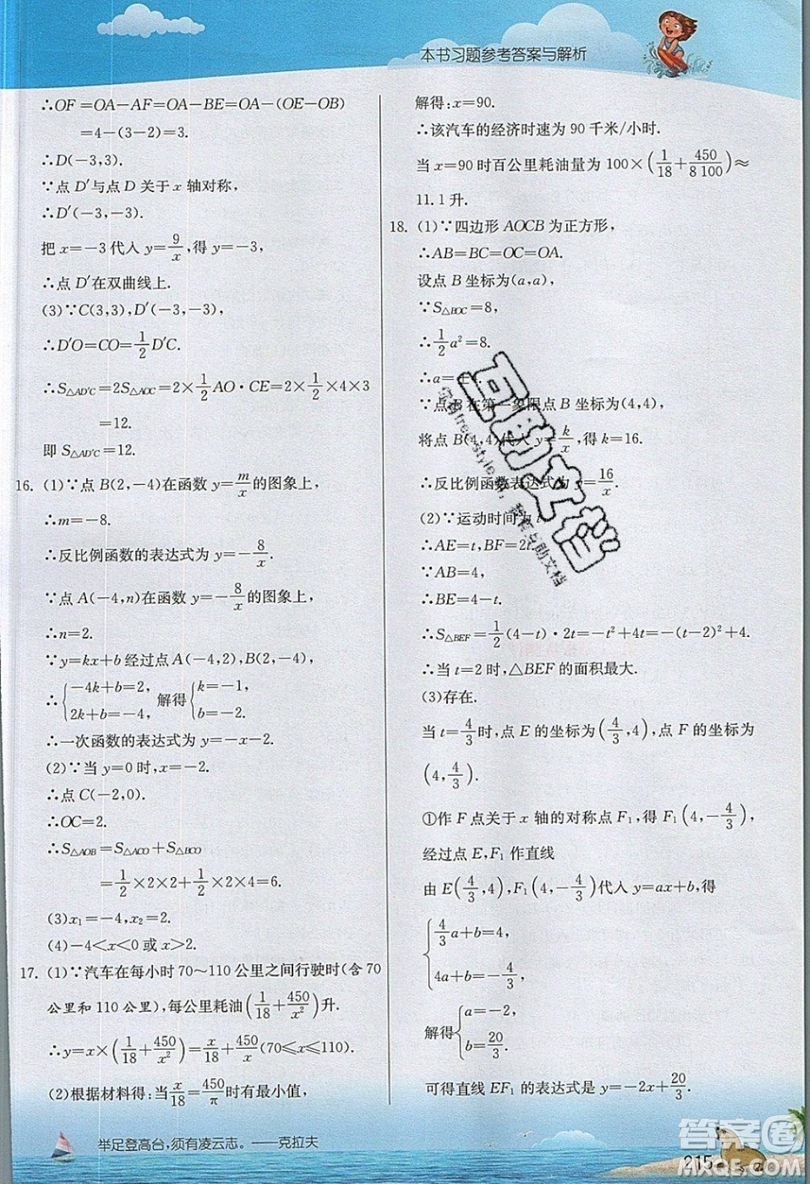 本书习题参考答案与解析
∴OF=OA-AF=OA-BE=OA-(OE-OB)
=4-(3-2)=3.
∴D(-3,3).
∵点 D′与点 D 关于 x 轴对称,
∴D′(-3,-3).
把 x=-3 代入 y=9/x,得 y=-3,
∴点 D′在双曲线上.
(3)∵C(3,3),D′(-3,-3),
∴D′O=CO=1/2D′C.
∴S△AD′C=2S△AOC=2×1/2AO·CE=2×1/2×4×3
=12.
即 S△AD′C=12.
16. (1)∵点 B(2,-4)在函数 y=m/x的图象上,
∴m=-8.
∴反比例函数的表达式为 y=-8/x.
∵点 A(-4,n)在函数 y=-8/x的图象上,
∴n=2.
∵y=kx+b 经过点 A(-4,2),B(2,-4),
∴{-4k+b=2, 2k+b=-4, 解得{k=-1, b=-2.
∴一次函数的表达式为 y=-x-2.
(2)∵当 y=0 时,x=-2.
∴点 C(-2,0).
∴OC=2.
∴S△AOB=S△ACO+S△BCO
=1/2×2×2+1/2×2×4=6.
(3)x₁=-4,x₂=2.
(4)-4<x<0 或 x>2.
17. (1)∵汽车在每小时 70～110 公里之间行驶时(含 70
公里和 110 公里),每公里耗油(1/18+450/x²)升.
∴y=x×(1/18+450/x²)=x/18+450/x(70≤x≤110).
(2)根据材料得:当x/18=450/π时有最小值,
解得:x=90.
∴该汽车的经济时速为 90 千米/小时.
当 x=90 时百公里耗油量为 100×(1/18+450/8 100)≈
11.1 升.
18. (1)∵四边形 AOCB 为正方形,
∴AB=BC=OC=OA.
设点 B 坐标为(a,a),
∵S△BOC=8,
∴1/2a²=8.
∴a=±
∵点 B 在第一象限点 B 坐标为(4,4),
将点 B(4,4)代入 y=k/x,得 k=16.
∴反比例函数表达式为 y=16/x.
(2)∵运动时间为
∴AE=t,BF=2t.
∵AB=4,
∴BE=4-t.
∴S△BEF=1/2(4-t)·2t=-t²+4t=-(t-2)²+4.
∴当 t=2 时,△BEF 的面积最大.
(3)存在.
当 t=4/3时,点 E 的坐标为(4/3,4),点 F 的坐标为
(4,4/3).
①作 F 点关于 x 轴的对称点 F₁,得 F₁(4,-4/3),
经过点 E,F₁ 作直线
由 E(4/3,4),F₁(4,-4/3)代入 y=ax+b,得
{4/3a+b=4,
4a+b=-4/3,
解得{a=-2,
b=20/3.
可得直线 EF₁ 的表达式是 y=-2x+20/3.
举足登高台,须有凌云志。——克拉夫
215
互助文档
答案圈
MXQE.COM